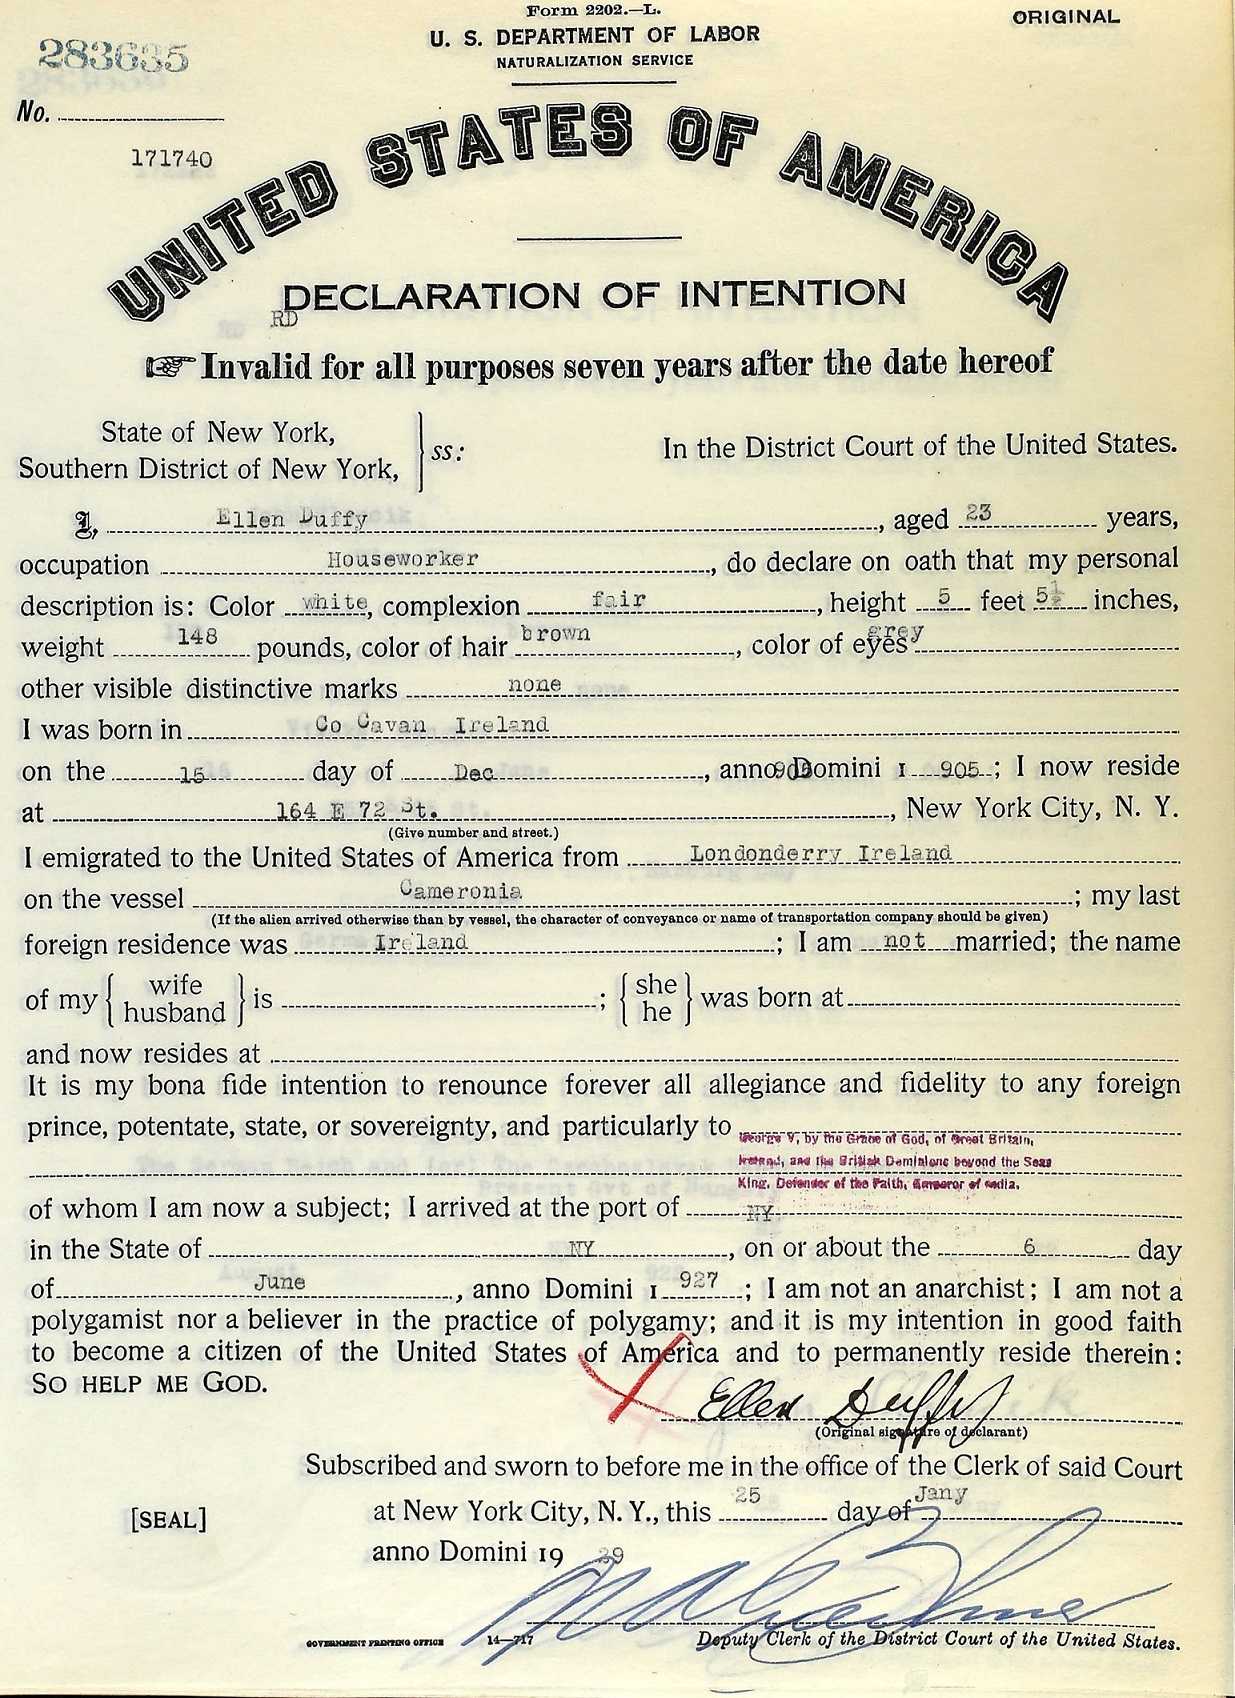 Form 2202.—L.
ORIGINAL
U. S. DEPARTMENT OF LABOR
NATURALIZATION SERVICE
283635
No.
171740
UNITED STATES OF AMERICA
DECLARATION OF INTENTION
RD
☞ Invalid for all purposes seven years after the date hereof
State of New York,
Southern District of New York,
ss:
In the District Court of the United States.
I, Ellen Duffy, aged 23 years,
occupation Houseworker, do declare on oath that my personal
description is: Color white, complexion fair, height 5 feet 5½ inches,
weight 148 pounds, color of hair brown, color of eyes grey
other visible distinctive marks none
I was born in Co Cavan Ireland
on the 15 day of Dec, anno Domini 1 905; I now reside
at 164 E 72 St., New York City, N. Y.
(Give number and street.)
I emigrated to the United States of America from Londonderry Ireland
on the vessel Cameronia; my last
(If the alien arrived otherwise than by vessel, the character of conveyance or name of transportation company should be given)
foreign residence was Ireland; I am not married; the name
of my { wife husband } is ; { she he } was born at
and now resides at
It is my bona fide intention to renounce forever all allegiance and fidelity to any foreign
prince, potentate, state, or sovereignty, and particularly to George V, by the Grace of God, of Great Britain,
Ireland, and the British Dominions beyond the Seas
King, Defender of the Faith, Emperor of India.
of whom I am now a subject; I arrived at the port of NY
in the State of NY, on or about the 6 day
of June, anno Domini 1 927; I am not an anarchist; I am not a
polygamist nor a believer in the practice of polygamy; and it is my intention in good faith
to become a citizen of the United States of America and to permanently reside therein:
SO HELP ME GOD.
Ellen Duffy
(Original signature of declarant)
Subscribed and sworn to before me in the office of the Clerk of said Court
[SEAL]
at New York City, N. Y., this 25 day of Jany
anno Domini 19 29
GOVERNMENT PRINTING OFFICE 14—717
Deputy Clerk of the District Court of the United States.